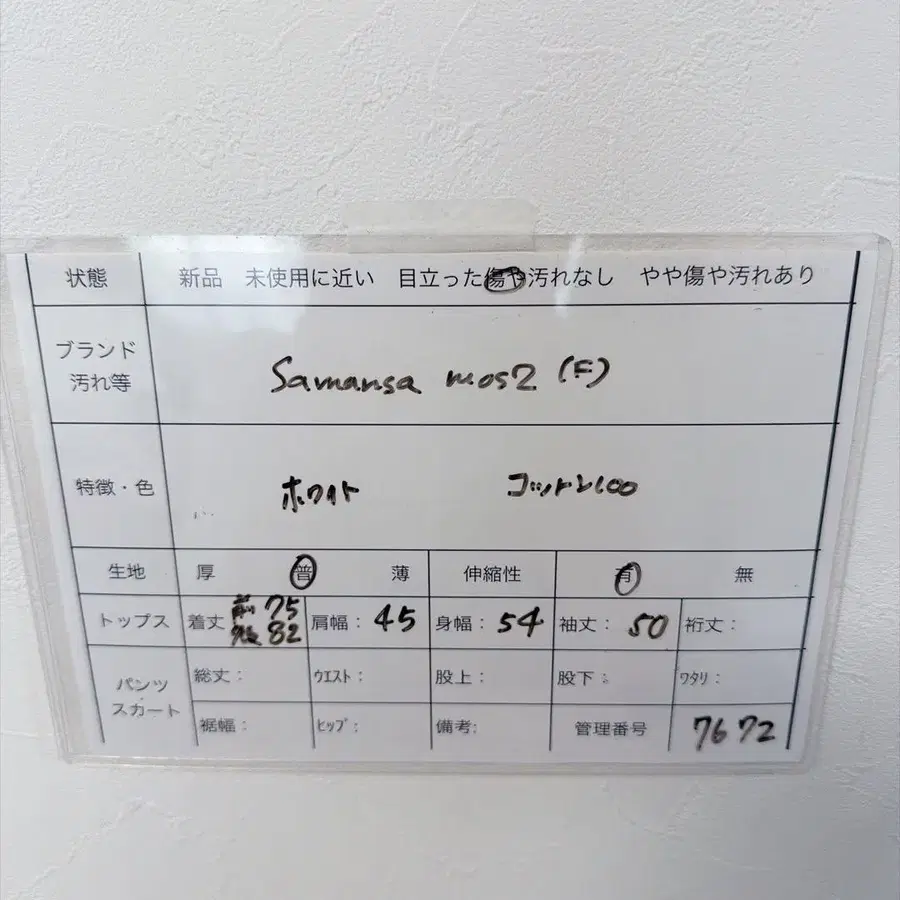 状態 新品 未使用に近い 目立った傷や汚れなし やや傷や汚れあり
ブランド
汚れ等
Samansa mos2 (F)
特徴・色 ホワイト コットン100
生地 厚 普 薄 伸縮性 有 無
トップス 着丈 前 75 肩幅: 45 身幅: 54 袖丈: 50 裄丈:
後 82
パンツ
スカート
総丈: ウエスト: 股上: 股下: ワタリ:
裾幅: ヒップ: 備考: 管理番号 7672